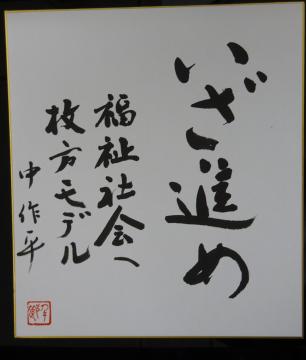 いざ進め
福祉社会へ
枚方モデル
中作平